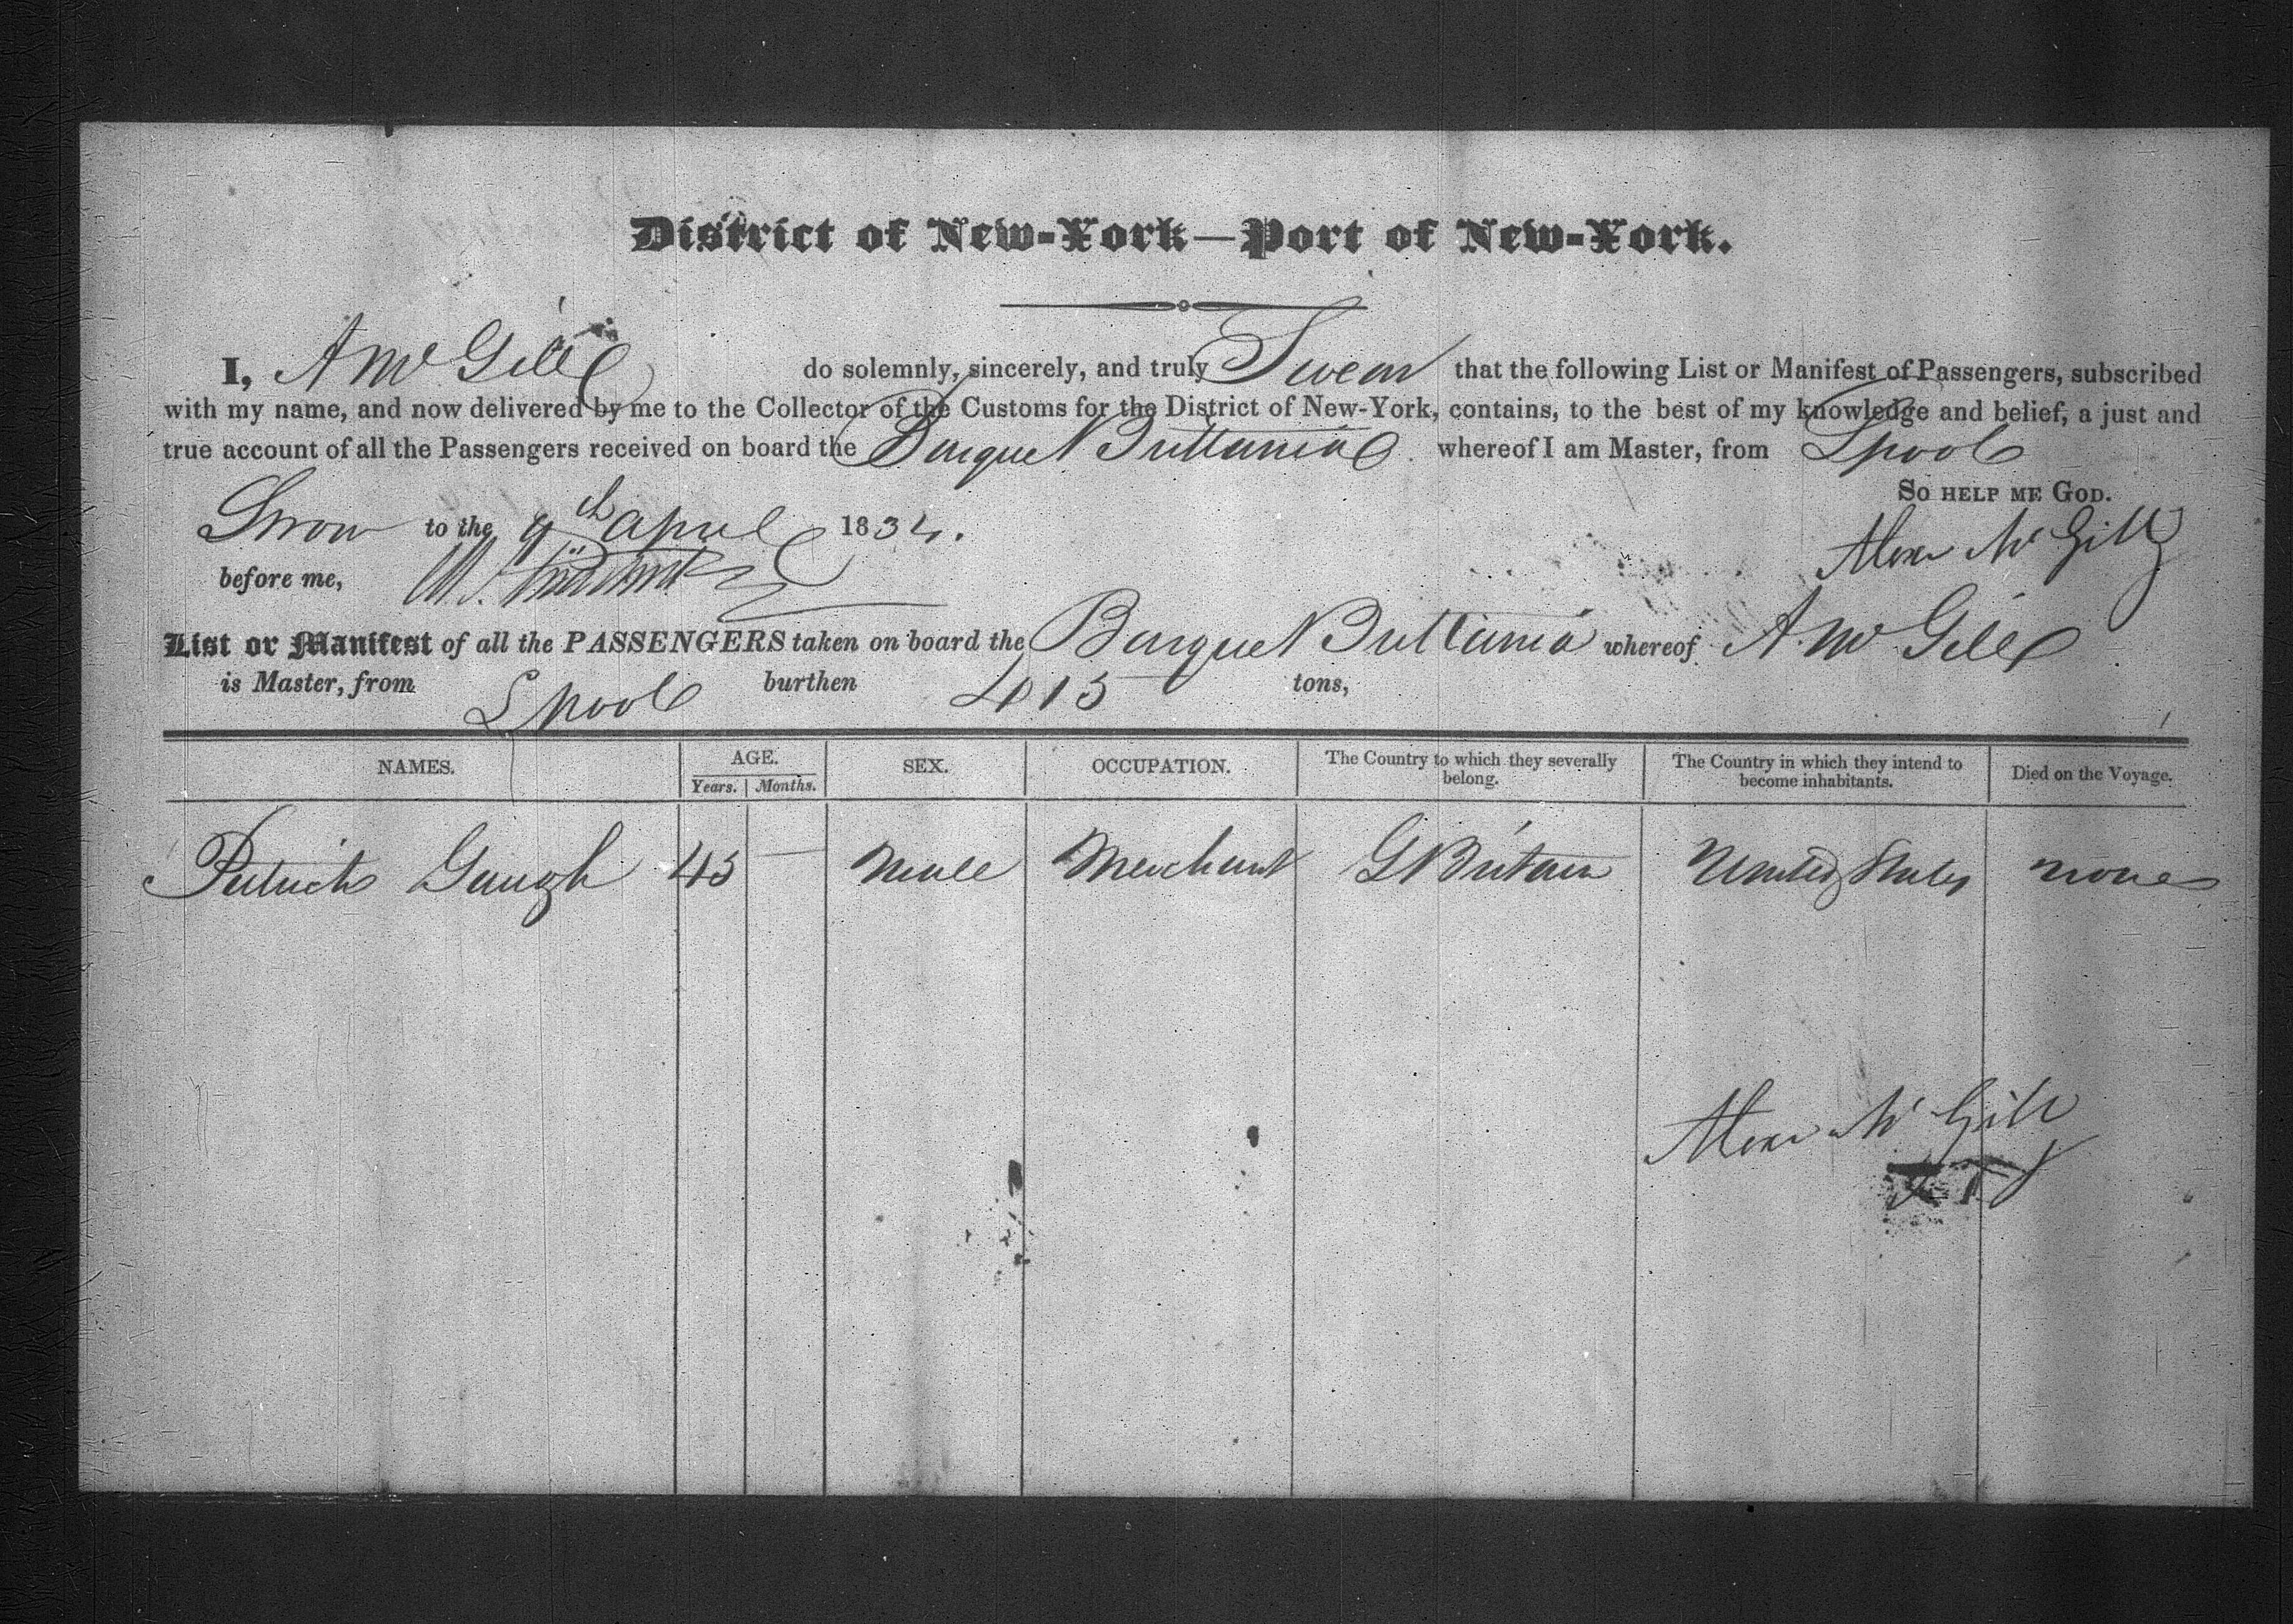 District of New-York—Port of New-York.
I, A Mc Gill do solemnly, sincerely, and truly Swear that the following List or Manifest of Passengers, subscribed
with my name, and now delivered by me to the Collector of the Customs for the District of New-York, contains, to the best of my knowledge and belief, a just and
true account of all the Passengers received on board the Barque Brittania whereof I am Master, from Lpool
So help me God.
Sworn to the 9th April 1834.
Alexr Mc Gill
before me,
List or Manifest of all the PASSENGERS taken on board the Barque Brittania whereof A Mc Gill
is Master, from Lpool burthen 415 tons,
NAMES. AGE. Years. Months. SEX. OCCUPATION. The Country to which they severally belong. The Country in which they intend to become inhabitants. Died on the Voyage.
Patrick Gaugh 45 — Male Merchant G Britain United States none
Alexr Mc Gill